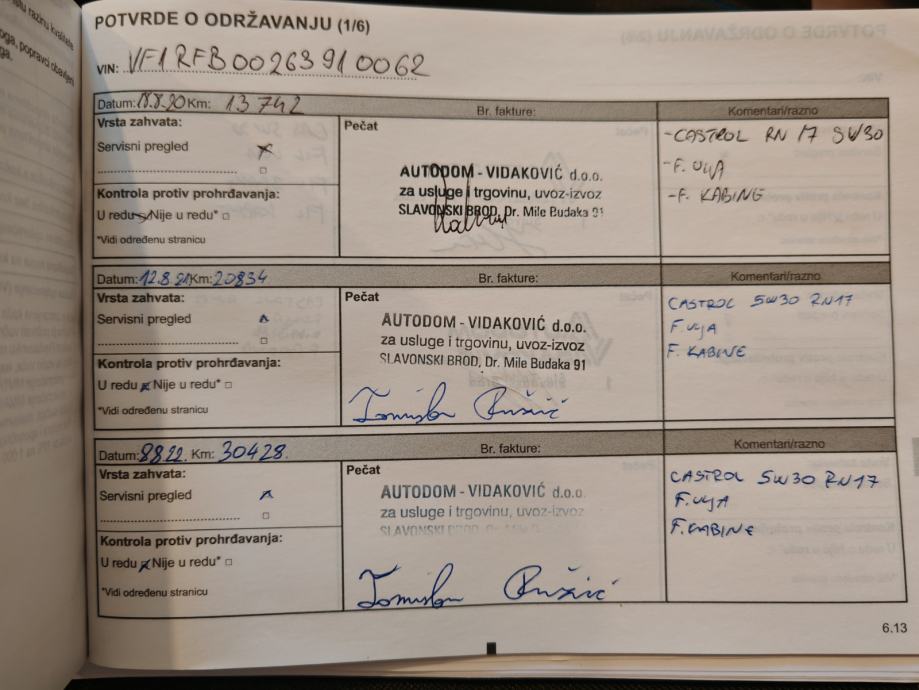 POTVRDE O ODRŽAVANJU (1/6)
VIN: VF1RFB00263910062
Datum: 18.8.20 Km: 13 742 Br. fakture: Komentari/razno
Vrsta zahvata:
Servisni pregled
Kontrola protiv prohrđavanja:
U redu Nije u redu*
*Vidi određenu stranicu
Pečat
AUTODOM - VIDAKOVIĆ d.o.o.
za usluge i trgovinu, uvoz-izvoz
SLAVONSKI BROD, Dr. Mile Budaka 91
- CASTROL RN 17 5W30
- F. ULJA
- F. KABINE
Datum: 12.8.21 Km: 20834 Br. fakture: Komentari/razno
Vrsta zahvata:
Servisni pregled
Kontrola protiv prohrđavanja:
U redu Nije u redu*
*Vidi određenu stranicu
Pečat
AUTODOM - VIDAKOVIĆ d.o.o.
za usluge i trgovinu, uvoz-izvoz
SLAVONSKI BROD, Dr. Mile Budaka 91
Tomislav Ružić
CASTROL 5W30 RN17
F. ULJA
F. KABINE
Datum: 8.8.22. Km: 30428. Br. fakture: Komentari/razno
Vrsta zahvata:
Servisni pregled
Kontrola protiv prohrđavanja:
U redu Nije u redu*
*Vidi određenu stranicu
Pečat
AUTODOM - VIDAKOVIĆ d.o.o.
za usluge i trgovinu, uvoz-izvoz
SLAVONSKI BROD, Dr. Mile Budaka
Tomislav Ružić
CASTROL 5W30 RN17
F. ULJA
F. KABINE
6.13